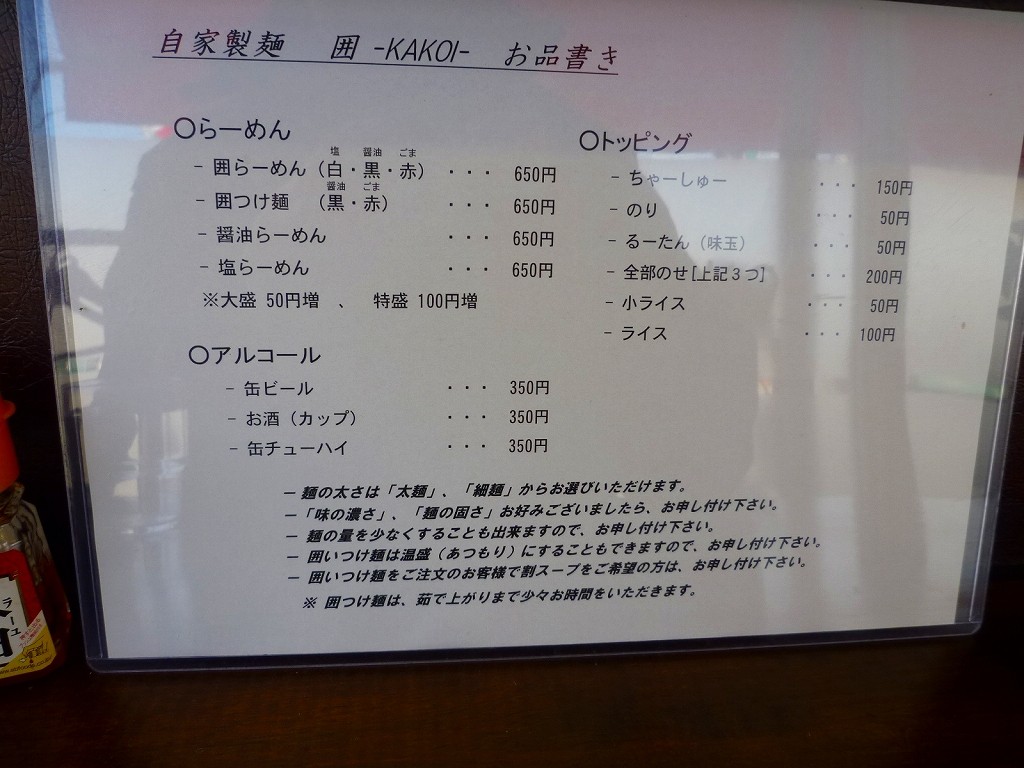 自家製麺 囲 -KAKOI- お品書き
〇らーめん
塩 醤油 ごま
- 囲らーめん（白・黒・赤） ・・・ 650円
醤油 ごま
- 囲つけ麺 （黒・赤） ・・・ 650円
- 醤油らーめん ・・・ 650円
- 塩らーめん ・・・ 650円
※大盛 50円増 、 特盛 100円増
〇アルコール
- 缶ビール ・・・ 350円
- お酒（カップ） ・・・ 350円
- 缶チューハイ ・・・ 350円
〇トッピング
- ちゃーしゅー ・・・ 150円
- のり ・・・ 50円
- るーたん（味玉） ・・・ 50円
- 全部のせ[上記３つ] ・・・ 200円
- 小ライス ・・・ 50円
- ライス ・・・ 100円
- 麺の太さは「太麺」、「細麺」からお選びいただけます。
-「味の濃さ」、「麺の固さ」お好みございましたら、お申し付け下さい。
- 麺の量を少なくすることも出来ますので、お申し付け下さい。
- 囲いつけ麺は温盛（あつもり）にすることもできますので、お申し付け下さい。
- 囲いつけ麺をご注文のお客様で割スープをご希望の方は、お申し付け下さい。
※ 囲つけ麺は、茹で上がりまで少々お時間をいただきます。
ラー